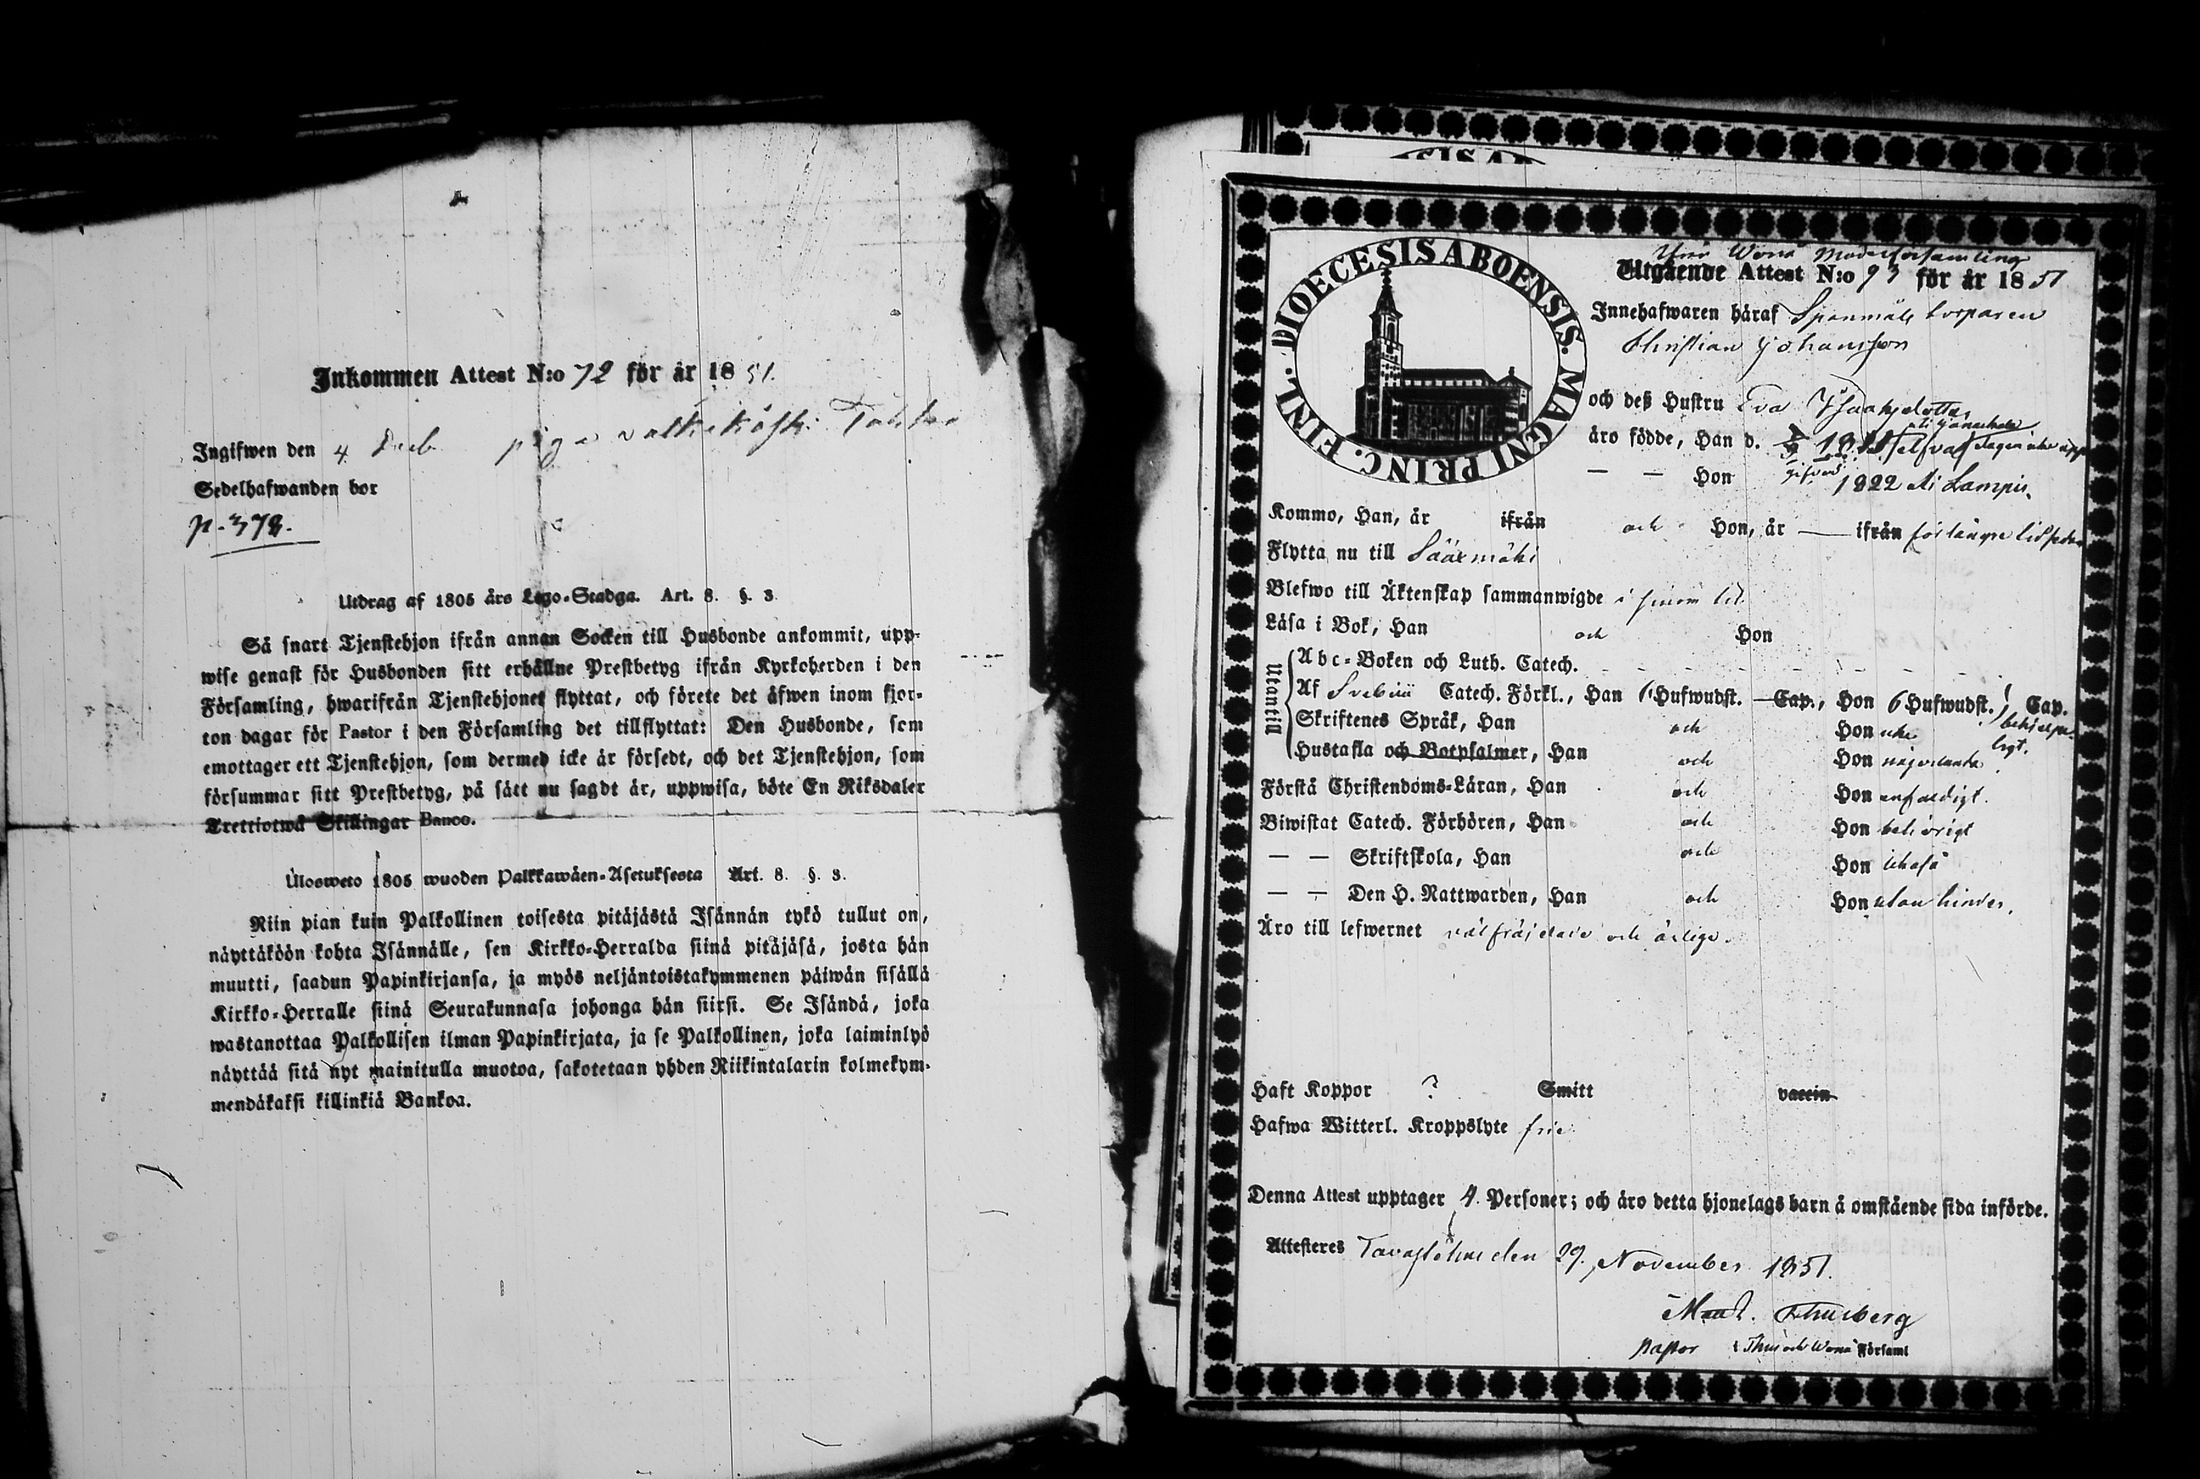 Inkommen Attest N:o 72 för år 1851.
Ingifwen den 4 Decb. piga valkiakoski
Sedelhafwanden bor
p. 378.
Utdrag af 1805 års Lego-Stadga. Art. 8. §. 3.
Så snart Tjenstehjon ifrån annan Socken till Husbonde ankommit, upp-
wise genast för Husbonden sitt erhållne Prestbetyg ifrån Kyrkoherden i den
Församling, hwarifrån Tjenstehjonet flyttat, och förete det äfwen inom fjor-
ton dagar för Pastor i den Församling det tillflyttat: Den Husbonde, som
emottager ett Tjenstehjon, som dermed icke är försedt, och det Tjenstehjon, som
försummar sitt Prestbetyg, på sätt nu sagdt är, uppwisa, böte En Riksdaler
Trettiotwå Skillingar Banco.
Ulosweto 1805 wuoden Palkkawäen-Asetuksesta Art. 8. §. 3.
Niin pian kuin Palkollinen toisesta pitäjästä Isännän tykö tullut on,
näyttäköön kohta Isännälle, sen Kirkko-Herralda siinä pitäjäsä, josta hän
muutti, saadun Papinkirjansa, ja myös neljäntoistakymmenen päiwän sisällä
Kirkko-Herralle siinä Seurakunnasa johonga hän siirsi. Se Isändä, joka
wastanottaa Palkollisen ilman Papinkirjata, ja se Palkollinen, joka laiminlyö
näyttää sitä nyt mainitulla muotoa, sakotetaan yhden Riikintalarin kolmekym-
mendäkaksi killinkiä Bankoa.
DIOECESIS ABOENSIS. MAGNI PRINC. FINL.
Wånå Moderförsamling
Utgående Attest N:o 93 för år 1851
Innehafwaren häraf Spanmåls torparen
Christian Johansson
och deß Hustru Eva Isaaksdotter
äro födde, Han d.
— — Hon 1822 i Lampis.
Kommo, Han, år ifrån och Hon, år — ifrån för längre tid sedan
Flytta nu till Sääxmäki
Blefwo till Äktenskap sammanwigde i sinom tid
Läsa i Bok, Han och Hon
Utantill
Abc-Boken och Luth. Catech.
Af Svebilii Catech. Förkl., Han 6 Hufwudst. — Cap., Hon 6 Hufwudst. Cap.
Skriftenes Språk, Han och Hon icke
Hustafla och Botpsalmer, Han och Hon någorlunda
Förstå Christendoms-Läran, Han och Hon enfaldigt.
Biwistat Catech. Förhören, Han och Hon behörigt
— — Skriftskola, Han och Hon likaså
— — Den H. Nattwarden, Han och Hon utan hinder.
Äro till lefwernet välfräjdade och ärlige.
Haft Koppor ? Smitt vaccin
Hafwa Witterl. Kroppslyte frie
Denna Attest upptager 4. Personer; och äro detta hjonelags barn å omstående sida införde.
Attesteres Tavastehus den 29. November 1851.
Thurberg
Pastor i Thus och Wånå Församl